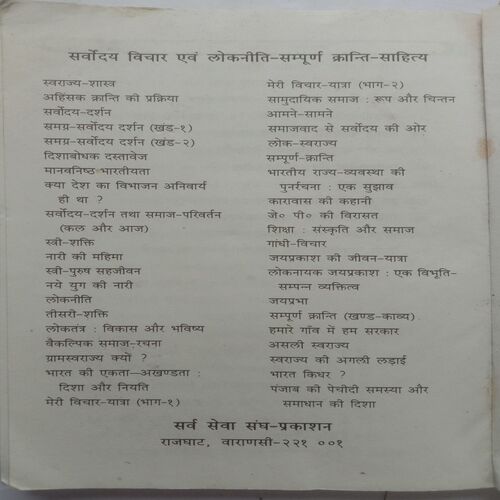 सर्वोदय विचार एवं लोकनीति-सम्पूर्ण क्रान्ति-साहित्य
स्वराज्य-शास्त्र
अहिंसक क्रान्ति की प्रक्रिया
सर्वोदय-दर्शन
समग्र-सर्वोदय दर्शन (खंड-१)
समग्र-सर्वोदय दर्शन (खंड-२)
दिशाबोधक दस्तावेज
मानवनिष्ठ भारतीयता
क्या देश का विभाजन अनिवार्य
ही था ?
सर्वोदय-दर्शन तथा समाज-परिवर्तन
(कल और आज)
स्त्री-शक्ति
नारी की महिमा
स्त्री-पुरुष सहजीवन
नये युग की नारी
लोकनीति
तीसरी-शक्ति
लोकतंत्र : विकास और भविष्य
वैकल्पिक समाज-रचना
ग्रामस्वराज्य क्यों ?
भारत की एकता—अखण्डता :
दिशा और नियति
मेरी विचार-यात्रा (भाग-१)
मेरी विचार-यात्रा (भाग-२)
सामुदायिक समाज : रूप और चिन्तन
आमने-सामने
समाजवाद से सर्वोदय की ओर
लोक-स्वराज्य
सम्पूर्ण-क्रान्ति
भारतीय राज्य-व्यवस्था की
पुनर्रचना : एक सुझाव
कारावास की कहानी
जे० पी० की विरासत
शिक्षा : संस्कृति और समाज
गांधी-विचार
जयप्रकाश की जीवन-यात्रा
लोकनायक जयप्रकाश : एक विभूति-
सम्पन्न व्यक्तित्व
जयप्रभा
सम्पूर्ण क्रान्ति (खण्ड-काव्य)
हमारे गाँव में हम सरकार
असली स्वराज्य
स्वराज्य की अगली लड़ाई
भारत किधर ?
पंजाब की पेचीदी समस्या और
समाधान की दिशा
सर्व सेवा संघ-प्रकाशन
राजघाट, वाराणसी-२२१ ००१